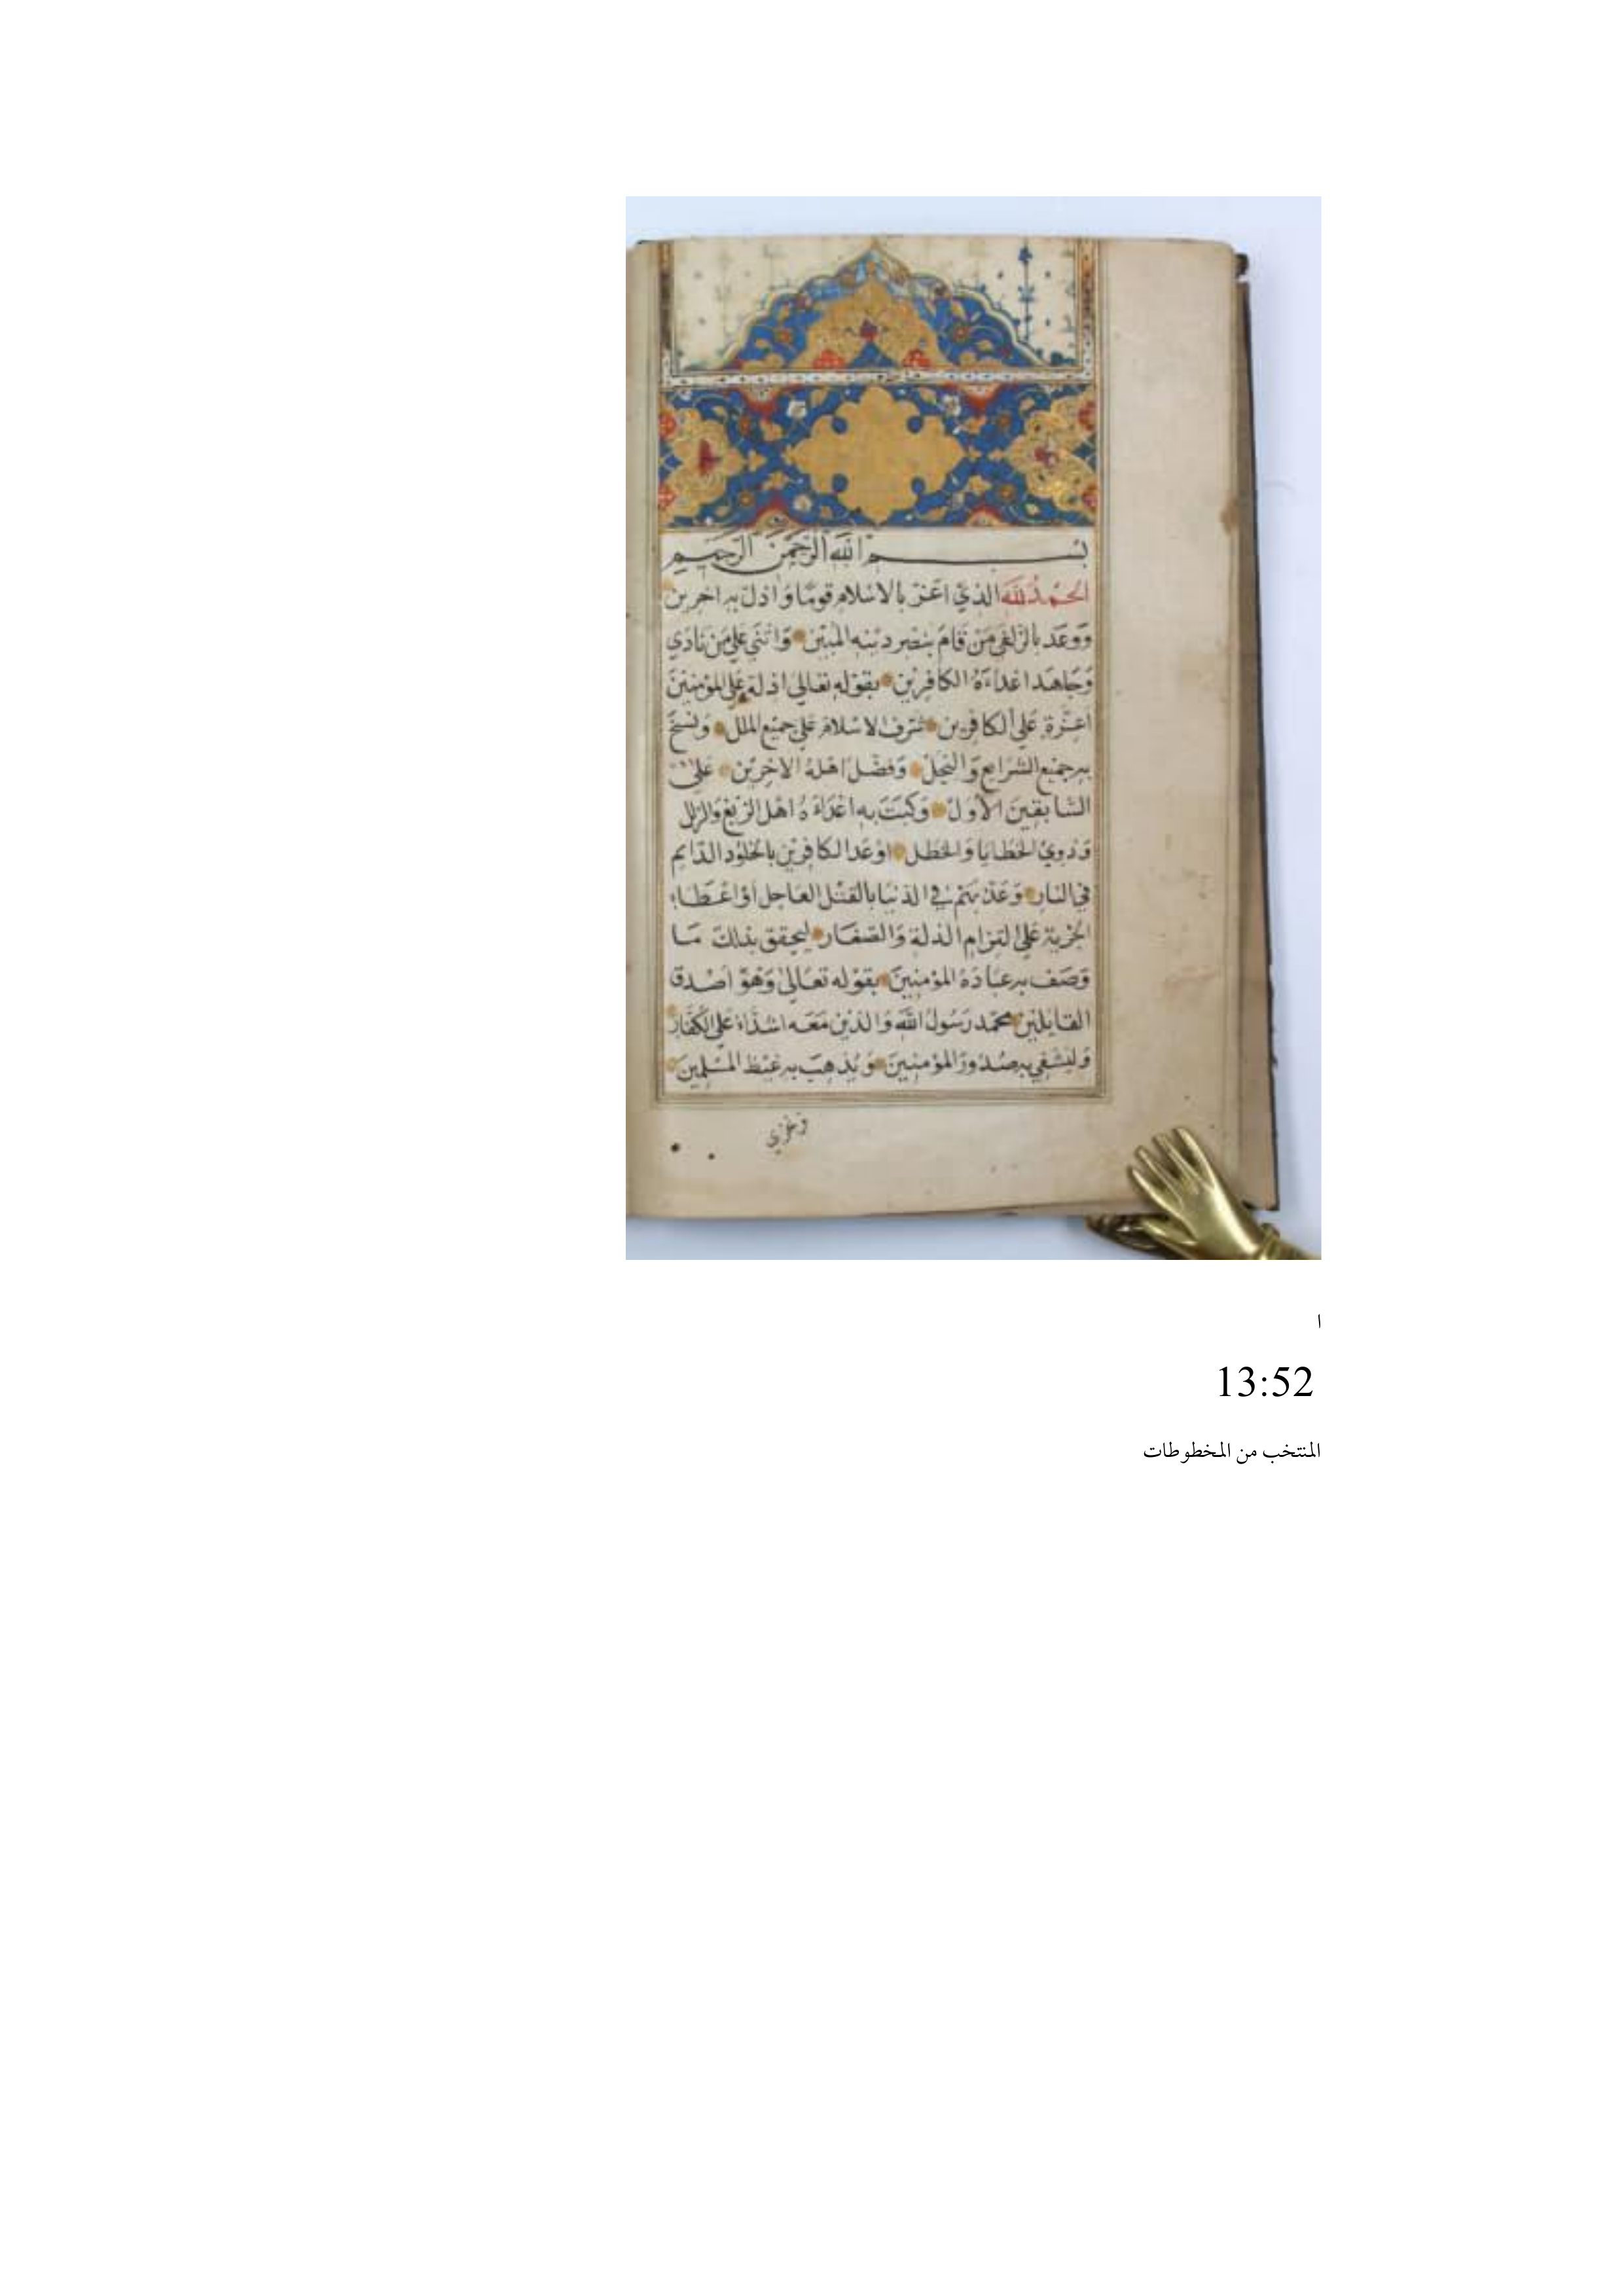 بسم الله الرحمن الرحيم
الحمد لله الذي اعز بالاسلام قوما واذل به اخرين
ووعد بالزلفى من قام بنصر دينه المبين واثنى على من نادي
وجاهد اعداءه الكافرين بقوله تعالى اذلة على المؤمنين
اعزة على الكافرين شرف الاسلام على جميع الملل ونسخ
به جميع الشرايع والنحل وفضل اهله الاخرين على
السابقين الاول وكبت به اعداءه اهل الزيغ والزلل
وذوي الخطايا والخطل اوعد الكافرين بالخلود الدايم
في النار وعذبهم في الدنيا بالقتل العاجل او اعطاء
الجزية على التزام الذلة والصغار ليحقق بذلك ما
وصف به عباده المؤمنين بقوله تعالى وهو اصدق
القايلين محمد رسول الله والذين معه اشداء على الكفار
وليشفي به صدور المؤمنين ويذهب به غيظ المسلمين
ا
13:52
المنتخب من المخطوطات